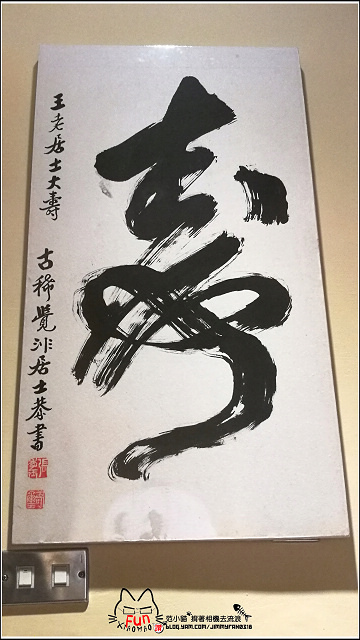 壽
王老居士大壽
古稀覺非居士恭書
FUN
XIAOMAO
范小貓 揹著相機去流浪
BLOG.YAM.COM/JIMMYFAN0318